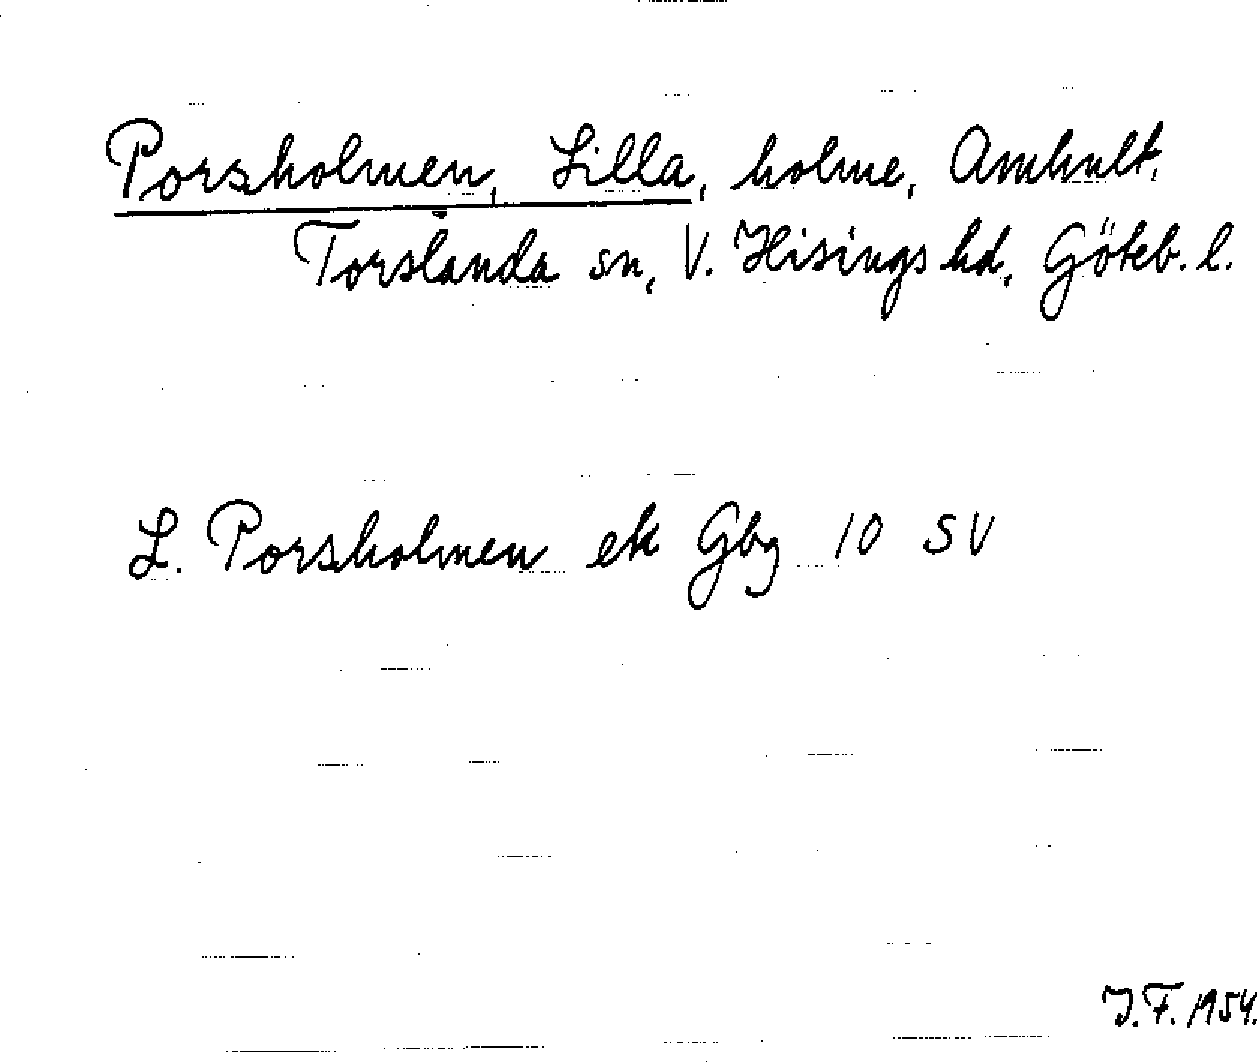 Porsholmen, Lilla, holme, Amhult,
Torslanda sn, V. Hisings hd, Göteb. l.
L. Porsholmen ek Gbg 10 SV
J.F. 1954.